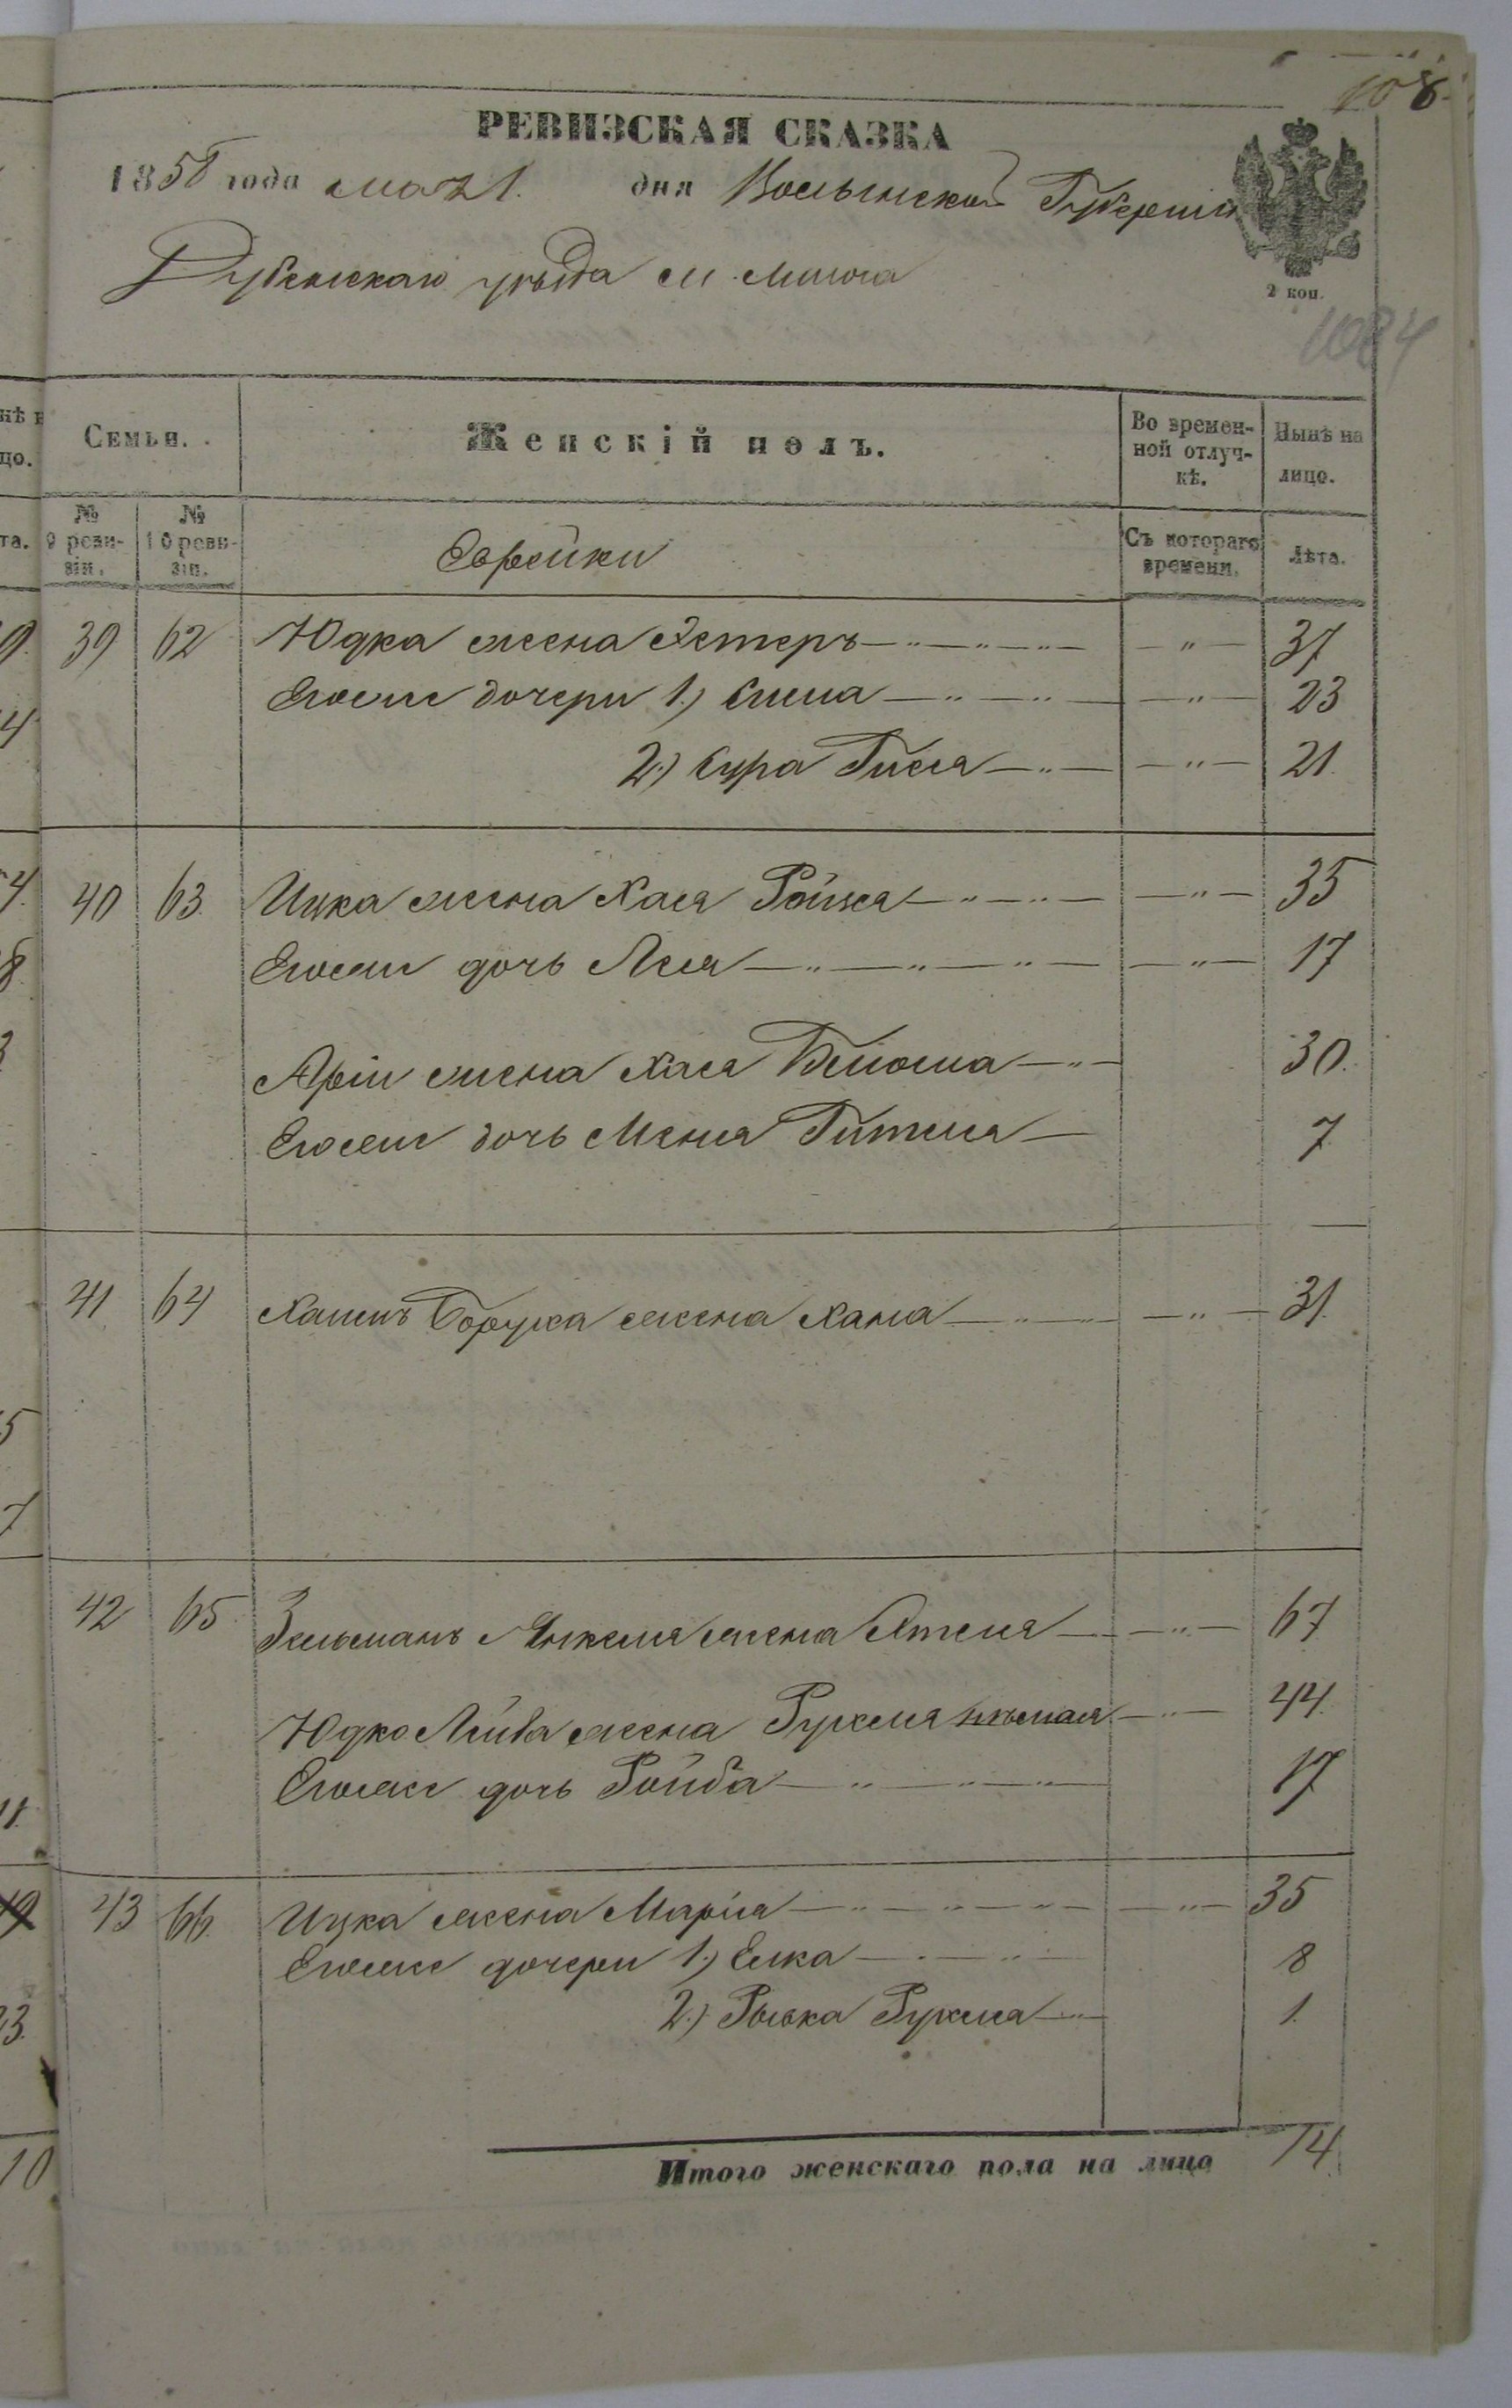 108
РЕВИЗСКАЯ СКАЗКА
1858 года мая 1. дня Волынской Губерніи
Дубенскаго уѣзда м. Млинова
2 коп.
1084
Семьи.
Женскій полъ.
Во времен-
ной отлуч-
кѣ.
Нынѣ на
лицо.
№
9 реви-
зіи.
№
10 реви-
зіи.
Еврейки
Съ котораго
времени.
Лѣта.
39 62 Юдка жена Эстеръ —"—"—"— —"— 37
Егоже дочери 1.) Сима —"—"— —"— 23
2.) Сура Гися —"— —"— 21.
40 63. Ицка жена Хася Ройзя —"—"— —"— 35
Егоже дочь Лея —"—"—"— —"— 17
Арiи жена Хася Блюма —"— 30.
Егоже дочь Меня Гителя — 7
41 64 Хаимъ Боруха жена Хана —"—"— —"— 31.
42 65. Зельманъ Янкеля жена Этеля — —"— 67
Юдко Лейба жена Рухля нѣмая —"— 44.
Егоже дочь Ройба —"—"—"— 17
43 66. Ицка жена Марія —"—"—"— —"— 35
Егоже дочери 1.) Елка —"—"— 8
2.) Рывка Рухля —"— 1.
Итого женскаго пола на лицо 14.